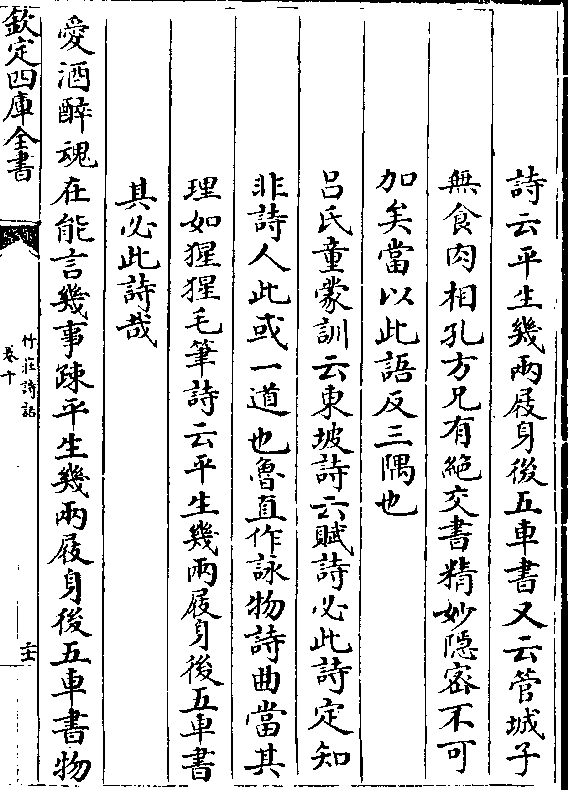 詩云平生幾兩屐身後五車書又云管城子
無食肉相孔方兄有絶交書精妙隠宻不可
加矣當以此語反三隅也
吕氏童蒙訓云東坡詩云賦詩必此詩定知
非詩人此或一道也魯直作詠物詩曲當其
理如猩猩毛筆詩云平生幾兩屐身後五車書
其必此詩哉
愛酒醉魂在能言幾事疎平生幾兩屐身後五車書物
欽定四庫全書
竹莊詩話
卷十